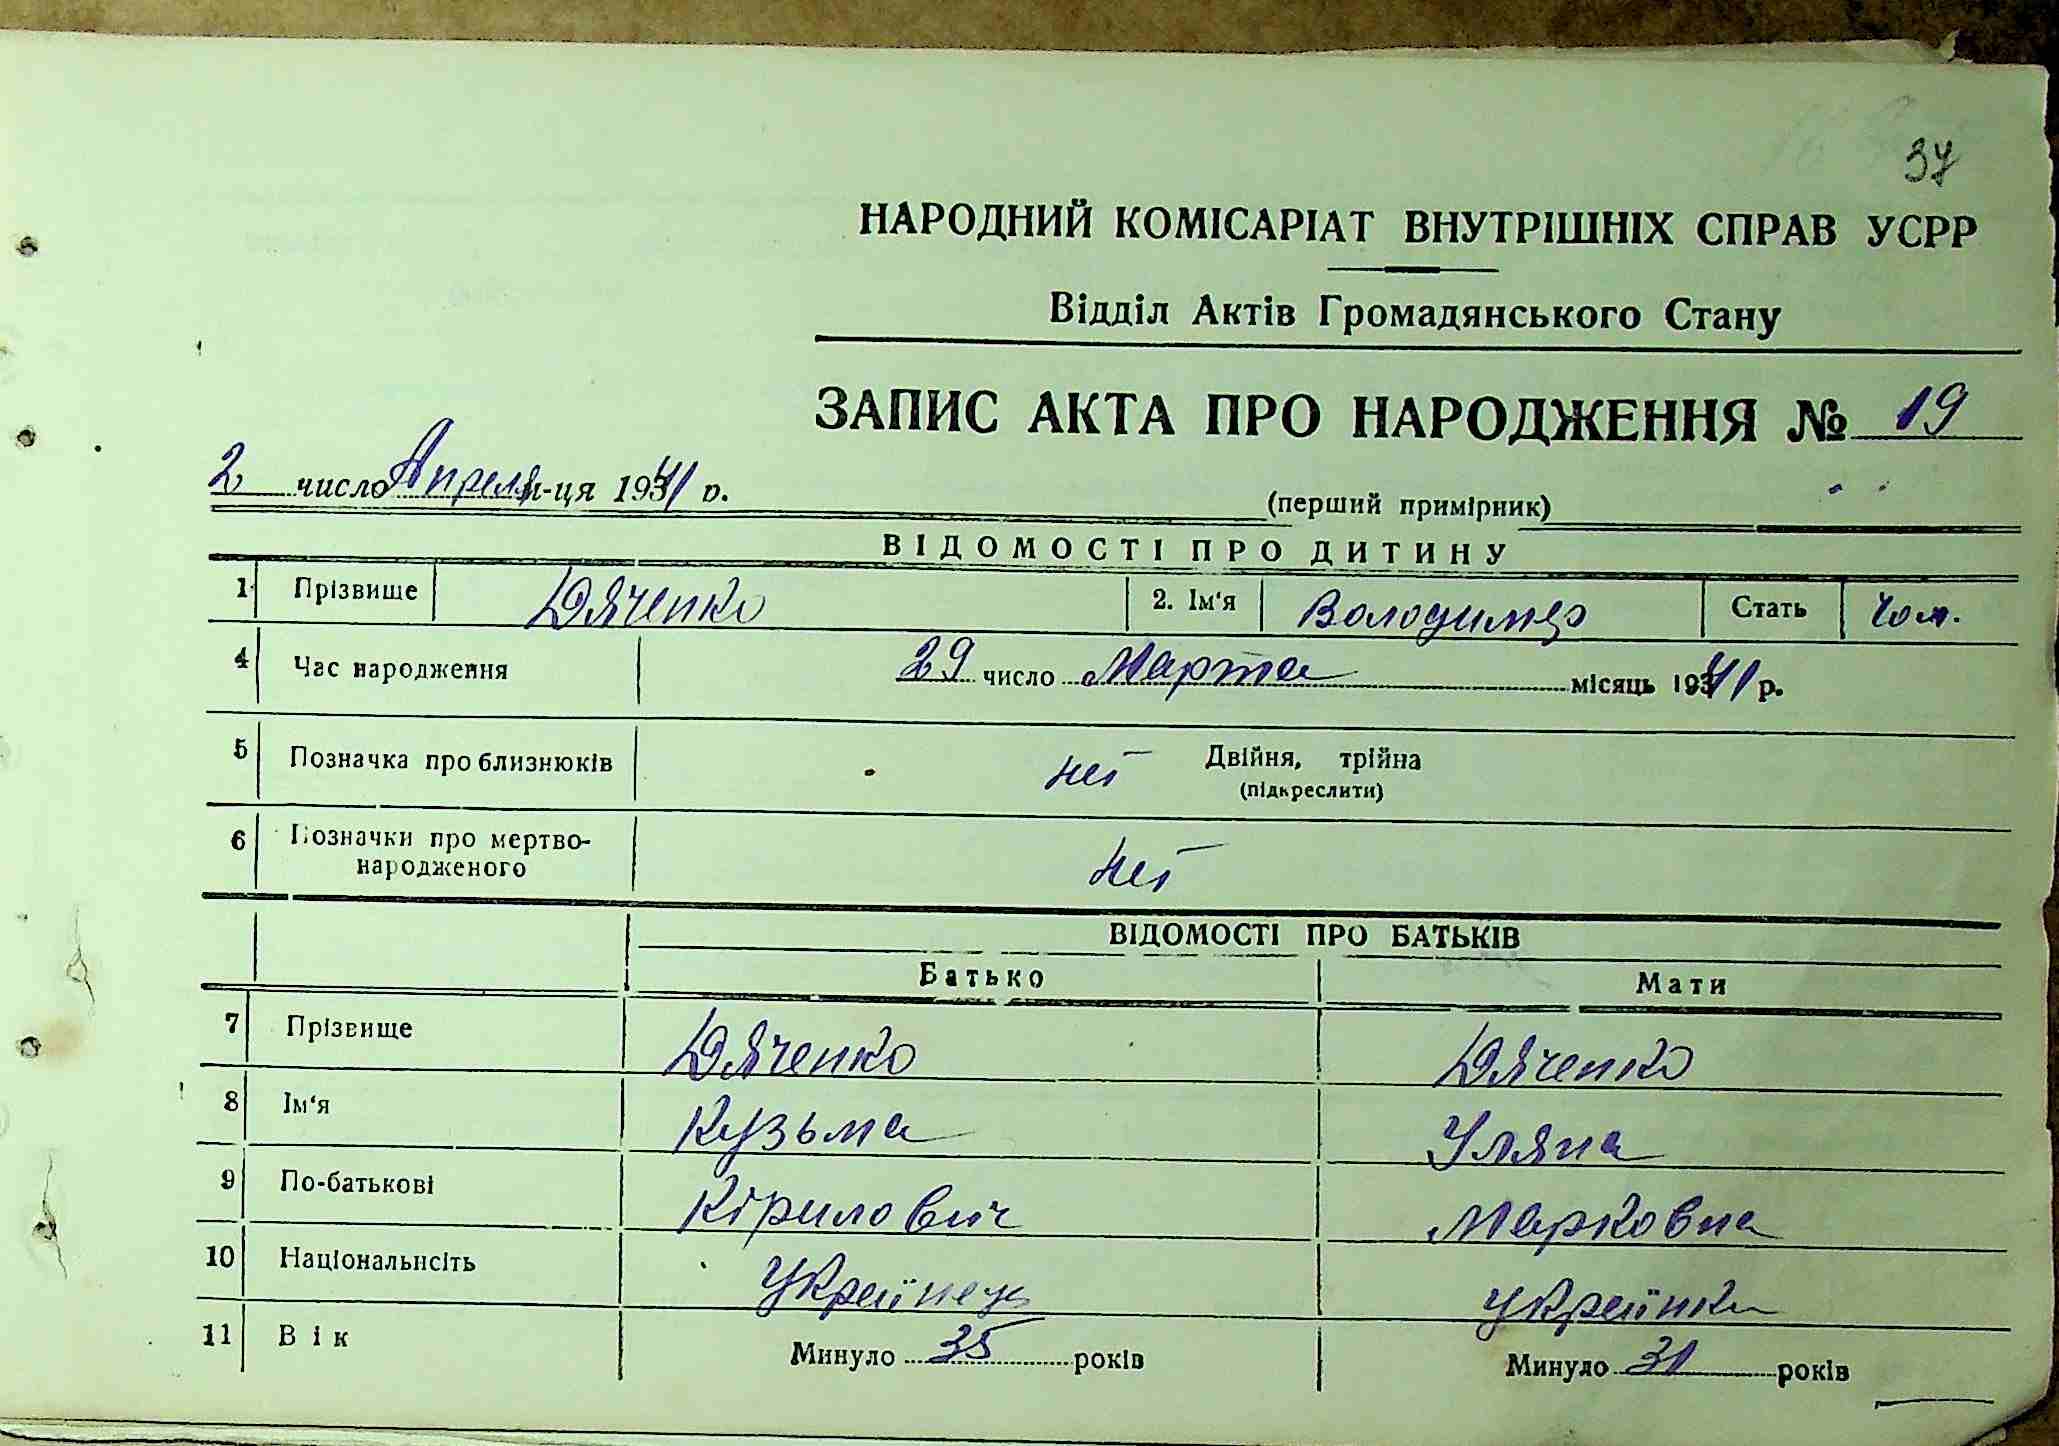 37
НАРОДНИЙ КОМІСАРІАТ ВНУТРІШНІХ СПРАВ УСРР
Відділ Актів Громадянського Стану
ЗАПИС АКТА ПРО НАРОДЖЕННЯ № 19
2 число Апреля м-ця 1941 р.
(перший примірник)
ВІДОМОСТІ ПРО ДИТИНУ
1 Прізвище Дяченко 2. Ім'я Володимер Стать Чол.
4 Час народження 29 число Марта місяць 1941 р.
5 Позначка про близнюків нет Двійня, трійна
(підкреслити)
6 Позначки про мертво-
народженого нет
ВІДОМОСТІ ПРО БАТЬКІВ
Батько Мати
7 Прізвище Дяченко Дяченко
8 Ім'я Кузьма Уляна
9 По-батькові Кірилович Марковна
10 Національність Українець Українка
11 Вік Минуло 35 років Минуло 31 років